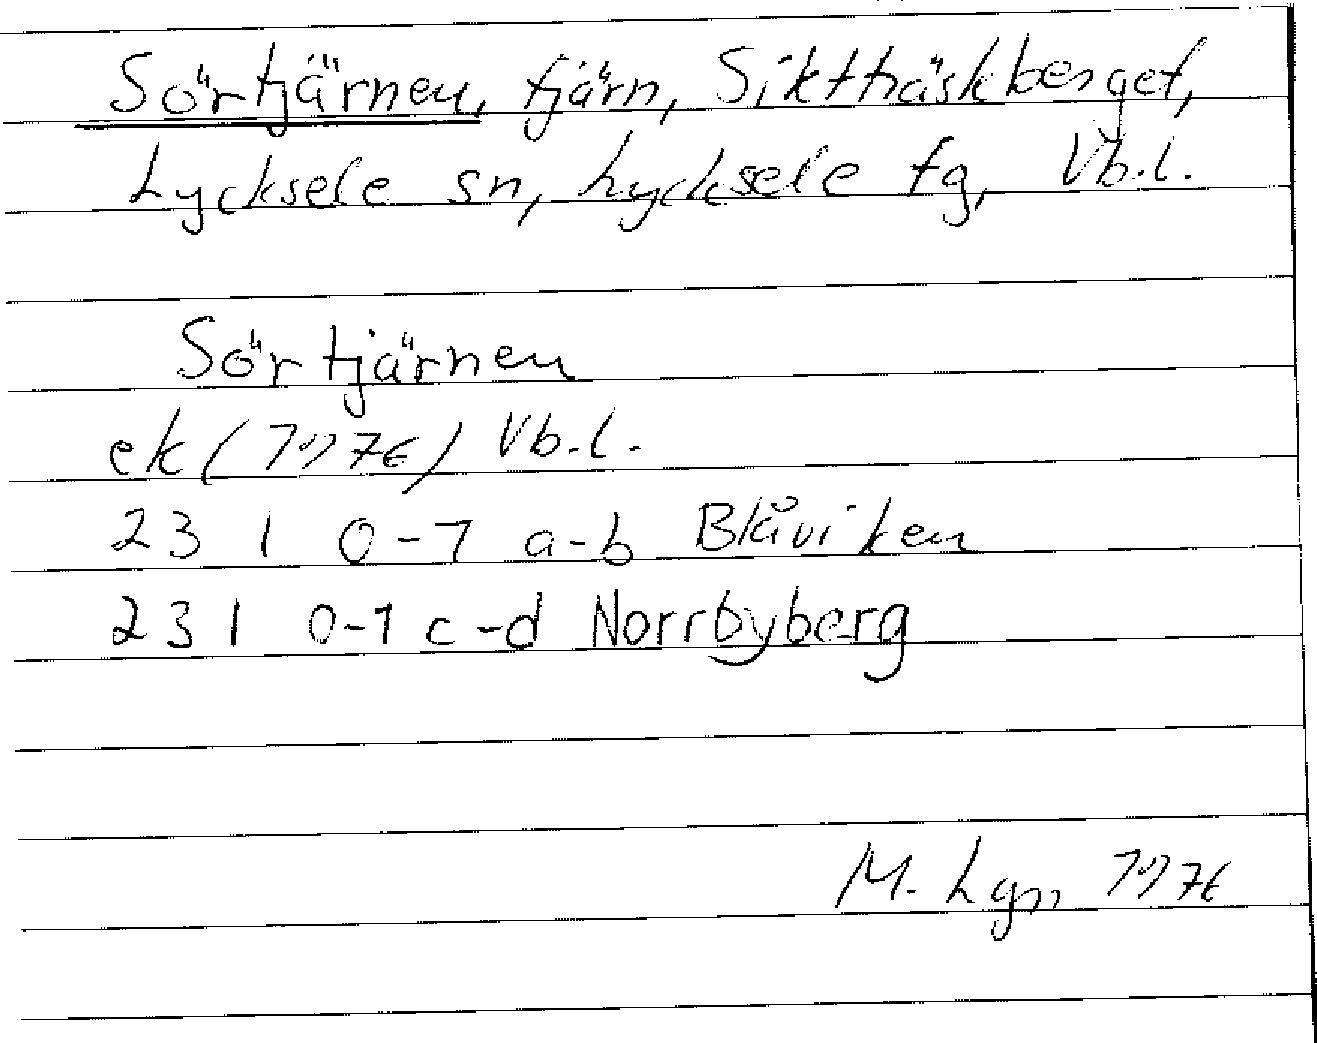 Sörtjärnen, tjärn, Siktträskberget,
Lycksele sn, Lycksele tg, Vb.l.
Sörtjärnen
ek (1976) Vb.l.
23 I 0-1 a-b Blåviken
23 I 0-1 c-d Norrbyberg
M. Lgn 1976